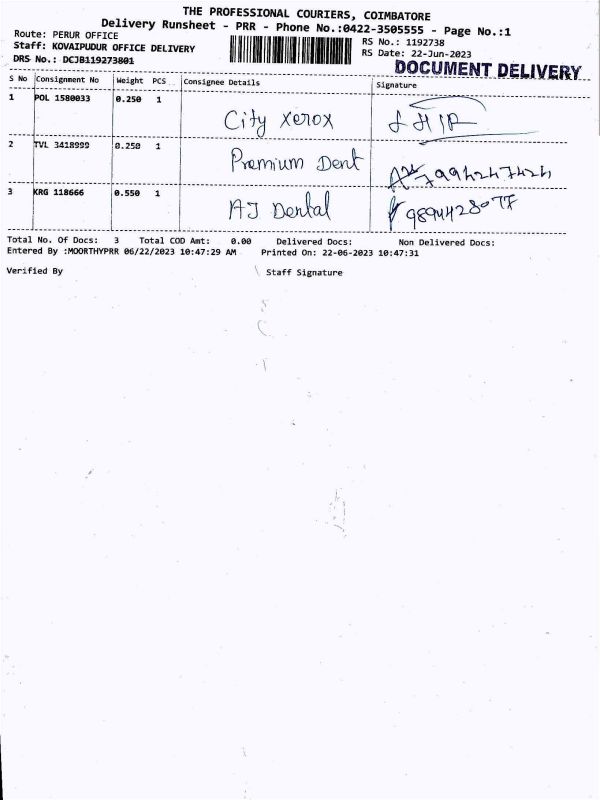 THE PROFESSIONAL COURIERS, COIMBATORE
Delivery Runsheet - PRR - Phone No.:0422-3505555 - Page No.:1
Route: PERUR OFFICE
Staff: KOVAIPUDUR OFFICE DELIVERY
DRS No.: DCJB119273801
RS No.: 1192738
RS Date: 22-Jun-2023
DOCUMENT DELIVERY
S No Consignment No Weight PCS Consignee Details Signature
1 POL 1580033 0.250 1 City Xerox
2 TVL 3418999 0.250 1 Premium Dent
3 KRG 118666 0.550 1 AJ Dental 9894428077
Total No. Of Docs: 3 Total COD Amt: 0.00 Delivered Docs: Non Delivered Docs:
Entered By :MOORTHYPRR 06/22/2023 10:47:29 AM Printed On: 22-06-2023 10:47:31
Verified By Staff Signature